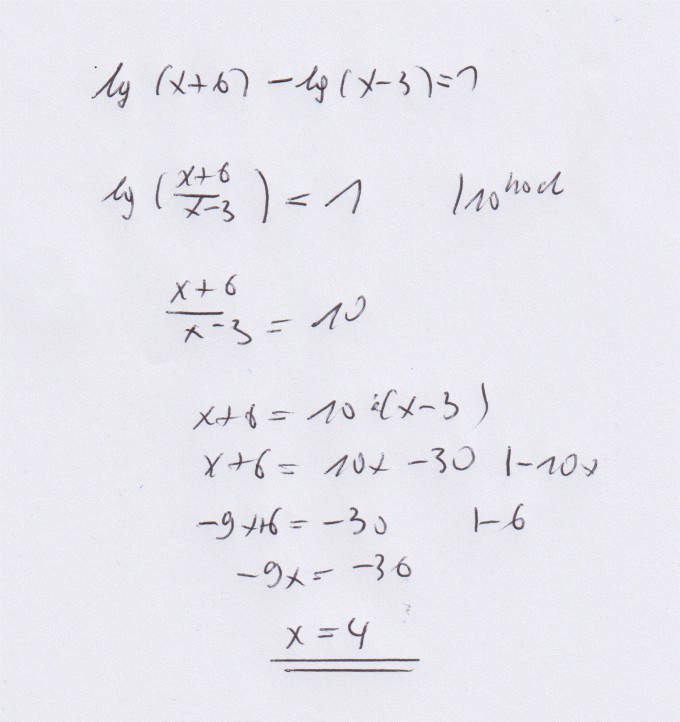 lg (x+6) - lg (x-3) = 1
lg ( (x+6)/(x-3) ) = 1 | 10^hoch
(x+6)/(x-3) = 10
x+6 = 10·(x-3)
x+6 = 10x - 30 |-10x
-9x+6 = -30 |-6
-9x = -36
x = 4